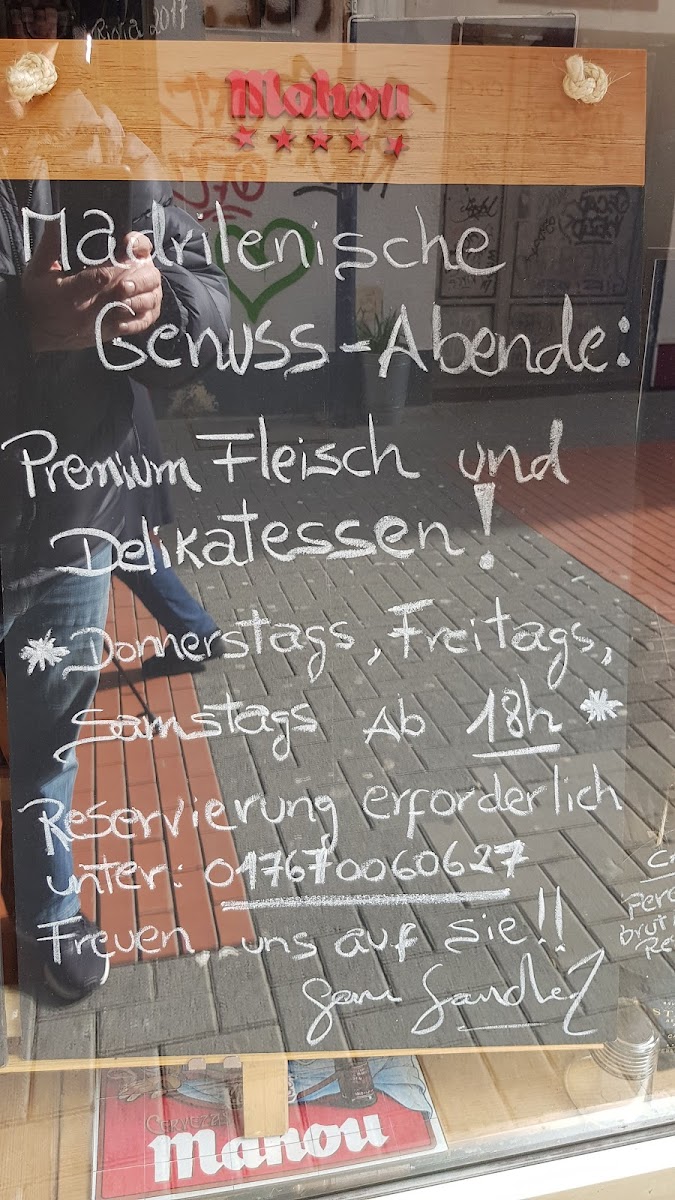 Rioja 2017
Mahou
Madrilenische
Genuss-Abende:
Premium Fleisch und
Delikatessen!
*Donnerstags, Freitags,
Samstags Ab 18h*
Reservierung erforderlich
unter: 017670060627
Freuen uns auf sie!!
brut
CERVEZAS
Mahou